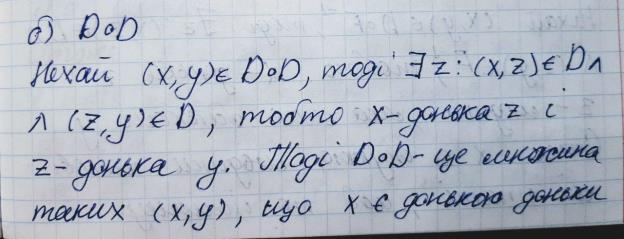 б) D∘D
Нехай (x,y)∈ D∘D, тоді ∃z: (x,z)∈D∧
∧ (z,y)∈D, тобто x-донька z і
z-донька y. Тоді D∘D-це множина
таких (x,y), що x є донькою доньки